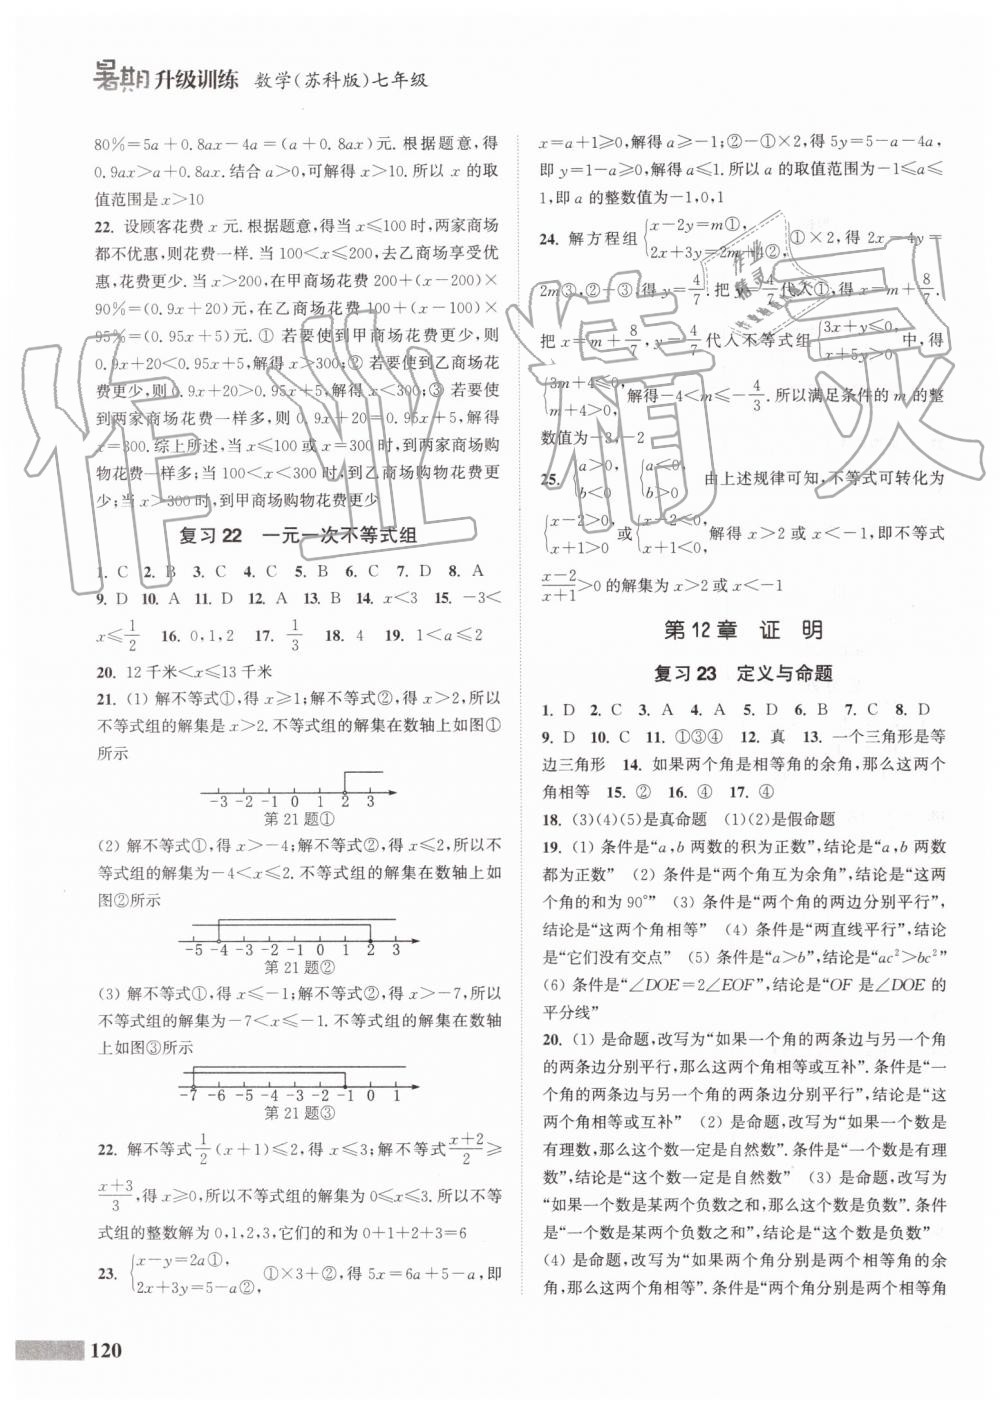 暑期升级训练 数学(苏科版)七年级
80%=5a+0.8ax-4a=(a+0.8ax)元. 根据题意,得
0.9ax>a+0.8ax. 结合 a>0,可解得 x>10. 所以 x 的取
值范围是 x>10
22. 设顾客花费 x 元. 根据题意,得当 x≤100 时,两家商场
都不优惠,则花费一样. 当 100<x≤200,去乙商场享受优
惠,花费更少. 当 x>200,在甲商场花费 200+(x-200)×
90%=(0.9x+20)元,在乙商场花费 100+(x-100)×
95%=(0.95x+5)元. ① 若要使到甲商场花费更少,则
0.9x+20<0.95x+5,解得 x>300;② 若要使到乙商场花
费更少,则 0.9x+20>0.95x+5,解得 x<300;③ 若要使
到两家商场花费一样多,则 0.9x+20=0.95x+5,解得
x=300. 综上所述,当 x≤100 或 x=300 时,到两家商场购
物花费一样多;当 100<x<300 时,到乙商场购物花费更
少;当 x>300 时,到甲商场购物花费更少
复习22 一元一次不等式组
1. C 2. B 3. C 4. C 5. B 6. C 7. D 8. A
9. D 10. A 11. D 12. A 13. B 14. x<3 15. -3<
x≤1/2 16. 0,1,2 17. 1/3 18. 4 19. 1<a≤2
20. 12 千米<x≤13 千米
21. (1) 解不等式①,得 x≥1;解不等式②,得 x>2,所以
不等式组的解集是 x>2. 不等式组的解集在数轴上如图①
所示
-3 -2 -1 0 1 2 3
第 21 题①
(2) 解不等式①,得 x>-4;解不等式②,得 x≤2,所以不
等式组的解集为-4<x≤2. 不等式组的解集在数轴上如
图②所示
-5 -4 -3 -2 -1 0 1 2 3
第 21 题②
(3) 解不等式①,得 x≤-1;解不等式②,得 x>-7,所以
不等式组的解集为-7<x≤-1. 不等式组的解集在数轴
上如图③所示
-7 -6 -5 -4 -3 -2 -1 0 1
第 21 题③
22. 解不等式 1/2(x+1)≤2,得 x≤3;解不等式 (x+2)/2≥
(x+3)/3,得 x≥0,所以不等式组的解集为 0≤x≤3. 所以不等
式组的整数解为 0,1,2,3,它们的和为 0+1+2+3=6
23. {x-y=2a①, 2x+3y=5-a②, ①×3+②,得 5x=6a+5-a,即
x=a+1≥0,解得 a≥-1;②-①×2,得 5y=5-a-4a,
即 y=1-a≥0,解得 a≤1. 所以 a 的取值范围为-1≤a≤
1,即 a 的整数值为-1,0,1
24. 解方程组 {x-2y=m①, 2x+3y=2m+4②, ①×2,得 2x-4y=
2m③,②-③,得 y=4/7. 把 y=4/7 代入①,得 x=m+8/7.
把 x=m+8/7,y=4/7 代入不等式组 {3x+y≤0, x+5y>0 中,得
{3m+4≤0, m+4>0, 解得-4<m≤-4/3. 所以满足条件的 m 的整
数值为-3,-2
25. {a>0, b<0 {a<0, b>0 由上述规律可知,不等式可转化为
{x-2>0, x+1>0 或 {x-2<0, x+1<0, 解得 x>2 或 x<-1,即不等式
(x-2)/(x+1)>0 的解集为 x>2 或 x<-1
第12章 证 明
复习23 定义与命题
1. D 2. C 3. A 4. A 5. D 6. B 7. C 8. D
9. D 10. C 11. ①③④ 12. 真 13. 一个三角形是等
边三角形 14. 如果两个角是相等角的余角,那么这两个
角相等 15. ② 16. ④ 17. ④
18. (3)(4)(5)是真命题 (1)(2)是假命题
19. (1) 条件是“a,b 两数的积为正数”,结论是“a,b 两数
都为正数” (2) 条件是“两个角互为余角”,结论是“这两
个角的和为 90°” (3) 条件是“两个角的两边分别平行”,
结论是“这两个角相等” (4) 条件是“两直线平行”,结论
是“它们没有交点” (5) 条件是“a>b”,结论是“ac²>bc²”
(6) 条件是“∠DOE=2∠EOF”,结论是“OF 是∠DOE 的
平分线”
20. (1) 是命题,改写为“如果一个角的两条边与另一个角
的两条边分别平行,那么这两个角相等或互补”. 条件是“一
个角的两条边与另一个角的两条边分别平行”,结论是“这
两个角相等或互补” (2) 是命题,改写为“如果一个数是
有理数,那么这个数一定是自然数”. 条件是“一个数是有理
数”,结论是“这个数一定是自然数” (3) 是命题,改写为
“如果一个数是某两个负数之和,那么这个数是负数”. 条件
是“一个数是某两个负数之和”,结论是“这个数是负数”
(4) 是命题,改写为“如果两个角分别是两个相等角的余
角,那么这两个角相等”. 条件是“两个角分别是两个相等角
120
作业精灵